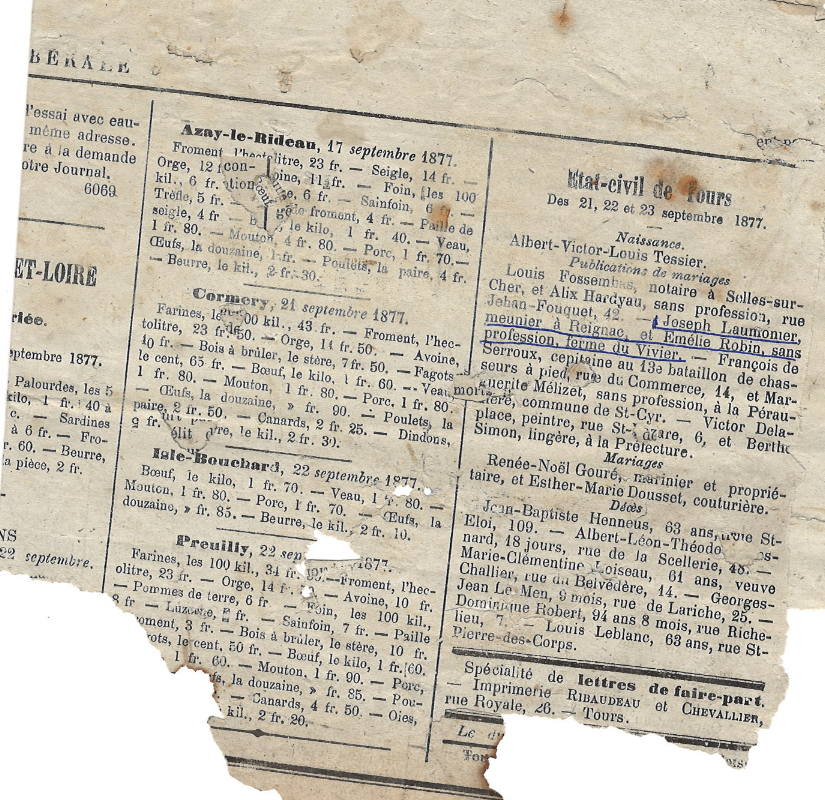 BÉRALE
l'essai avec eau-
même adresse.
re à la demande
otre Journal.
6069
ET-LOIRE
riée.
eptembre 1877.
Palourdes, les 5
kilo, 1 fr. 40 à
c. — Sardines
à 6 fr. — Fro-
r. 60. — Beurre,
la pièce, 2 fr.
NS
22 septembre.
Azay-le-Rideau, 17 septembre 1877.
Froment l'hectolitre, 23 fr. — Seigle, 14 fr. —
Orge, 12 f oine, 11 fr. — Foin, les 100
kil., 6 fr. e, 6 fr. — Sainfoin, 6 —
Trèfle, 5 fr. de froment, 4 fr. — Paille de
seigle, 4 fr — B le kilo, 1 fr. 40. — Veau,
1 fr. 80. — Mouton, 4 fr. 80. — Porc, 1 fr. 70. —
Œufs, la douzaine, 1 fr. — Poulets, la paire, 4 fr.
— Beurre, le kil., 2 fr. 30.
Cormery, 21 septembre 1877.
Farines, les 100 kil., 43 fr. — Froment, l'hec-
tolitre, 23 fr. 50. — Orge, 11 fr. 50. — Avoine,
10 fr. — Bois à brûler, le stère, 7 fr. 50. — Fagots
le cent, 65 fr. — Bœuf, le kilo, 1 fr. 60. — Veau
1 fr. 80. — Mouton, 1 fr. 80. — Porc, 1 fr. 80.
— Œufs, la douzaine, » fr. 90. — Poulets, la
paire, 2 fr. 50. — Canards, 2 fr. 25. — Dindons,
9 fr. rre, le kil., 2 fr. 30.
Isle-Bouchard, 22 septembre 1877
Bœuf, le kilo, 1 fr. 70. — Veau, 1 fr. 80. —
Mouton, 1 fr. 80. — Porc, 1 fr. 70. — Œufs, la
douzaine, » fr. 85. — Beurre, le kil., 2 fr. 10.
Preuilly, 22 sep 1877.
Farines, les 100 kil., 34 fr. — Froment, l'hec-
olitre, 23 fr. — Orge, 14 fr. — Avoine, 10 fr.
— Pommes de terre, 6 fr. — Foin, les 100 kil.,
8 fr. — Luzerne, fr. — Sainfoin, 7 fr. — Paille
oment, 3 fr. — Bois à brûler, le stère, 10 fr.
gots, le cent, 50 fr. — Bœuf, le kilo, 1 fr. 60.
1 fr. 60. — Mouton, 1 fr. 90. — Porc,
fs, la douzaine, » fr. 85. — Pou-
— Canards, 4 fr. 50. — Oies,
kil., 2 fr. 20.
Etat-civil de Tours
Des 21, 22 et 23 septembre 1877.
Naissance.
Albert-Victor-Louis Tessier.
Publications de mariages
Louis Fossembas, notaire à Selles-sur-
Cher, et Alix Hardyau, sans profession, rue
Jehan-Fouquet, 42. — Joseph Laumonier,
meunier à Reignac, et Emélie Robin, sans
profession, ferme du Vivier. — François de
Serroux, capitaine au 13e bataillon de chas-
seurs à pied, rue du Commerce, 14, et Mar-
guerite Mélizet, sans profession, à la Pérau-
tère, commune de St-Cyr. — Victor Dela-
place, peintre, rue St-Lazare, 6, et Berthe
Simon, lingère, à la Préfecture.
Mariages
Renée-Noël Gouré, marinier et proprié-
taire, et Esther-Marie Dousset, couturière.
Décès
Jean-Baptiste Henneus, 63 ans, rue St-
Eloi, 109. — Albert-Léon-Théodo os-
nard, 18 jours, rue de la Scellerie, 48. —
Marie-Clémentine Loiseau, 61 ans, veuve
Challier, rue du Belvédère, 14. — Georges-
Jean Le Men, 9 mois, rue de Lariche, 25. —
Dominique Robert, 94 ans 8 mois, rue Riche-
lieu, 7. — Louis Leblanc, 63 ans, rue St-
Pierre-des-Corps.
Spécialité de lettres de faire-part.
— Imprimerie RIBAUDEAU et CHEVALLIER,
rue Royale, 26. — Tours.
Le
Tou